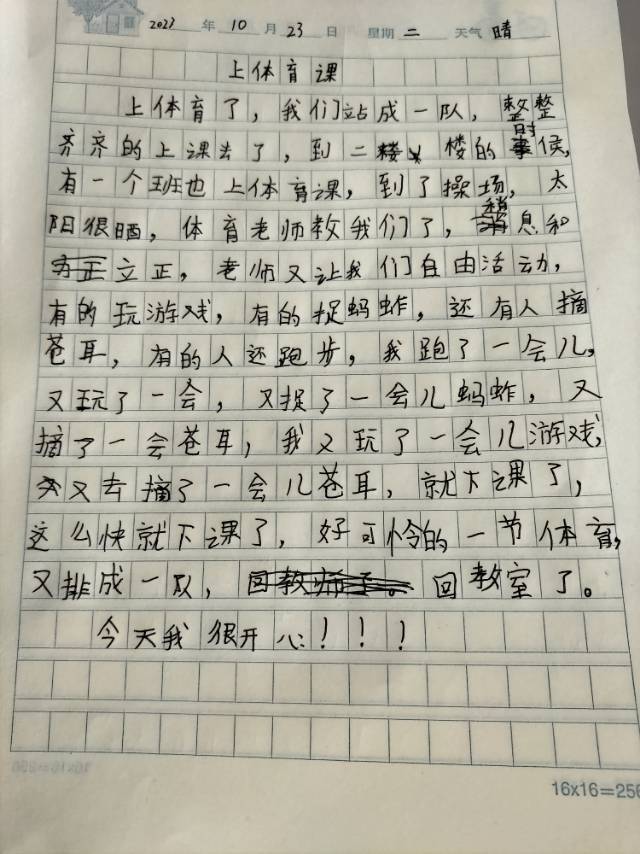 2023年10月23日 星期二 天气晴
上体育课
上体育了，我们站成一队，整整
齐齐的上课去了，到二楼楼的时候，
有一个班也上体育课，到了操场，太
阳很晒，体育老师教我们了，稍息和
立正，老师又让我们自由活动，
有的玩游戏，有的捉蚂蚱，还有人摘
苍耳，有的人还跑步，我跑了一会儿，
又玩了一会，又捉了一会儿蚂蚱，又
摘了一会苍耳，我又玩了一会儿游戏，
又去摘了一会儿苍耳，就下课了，
这么快就下课了，好可怜的一节体育，
又排成一队，回教室了。
今天我很开心！！！
16x16=256